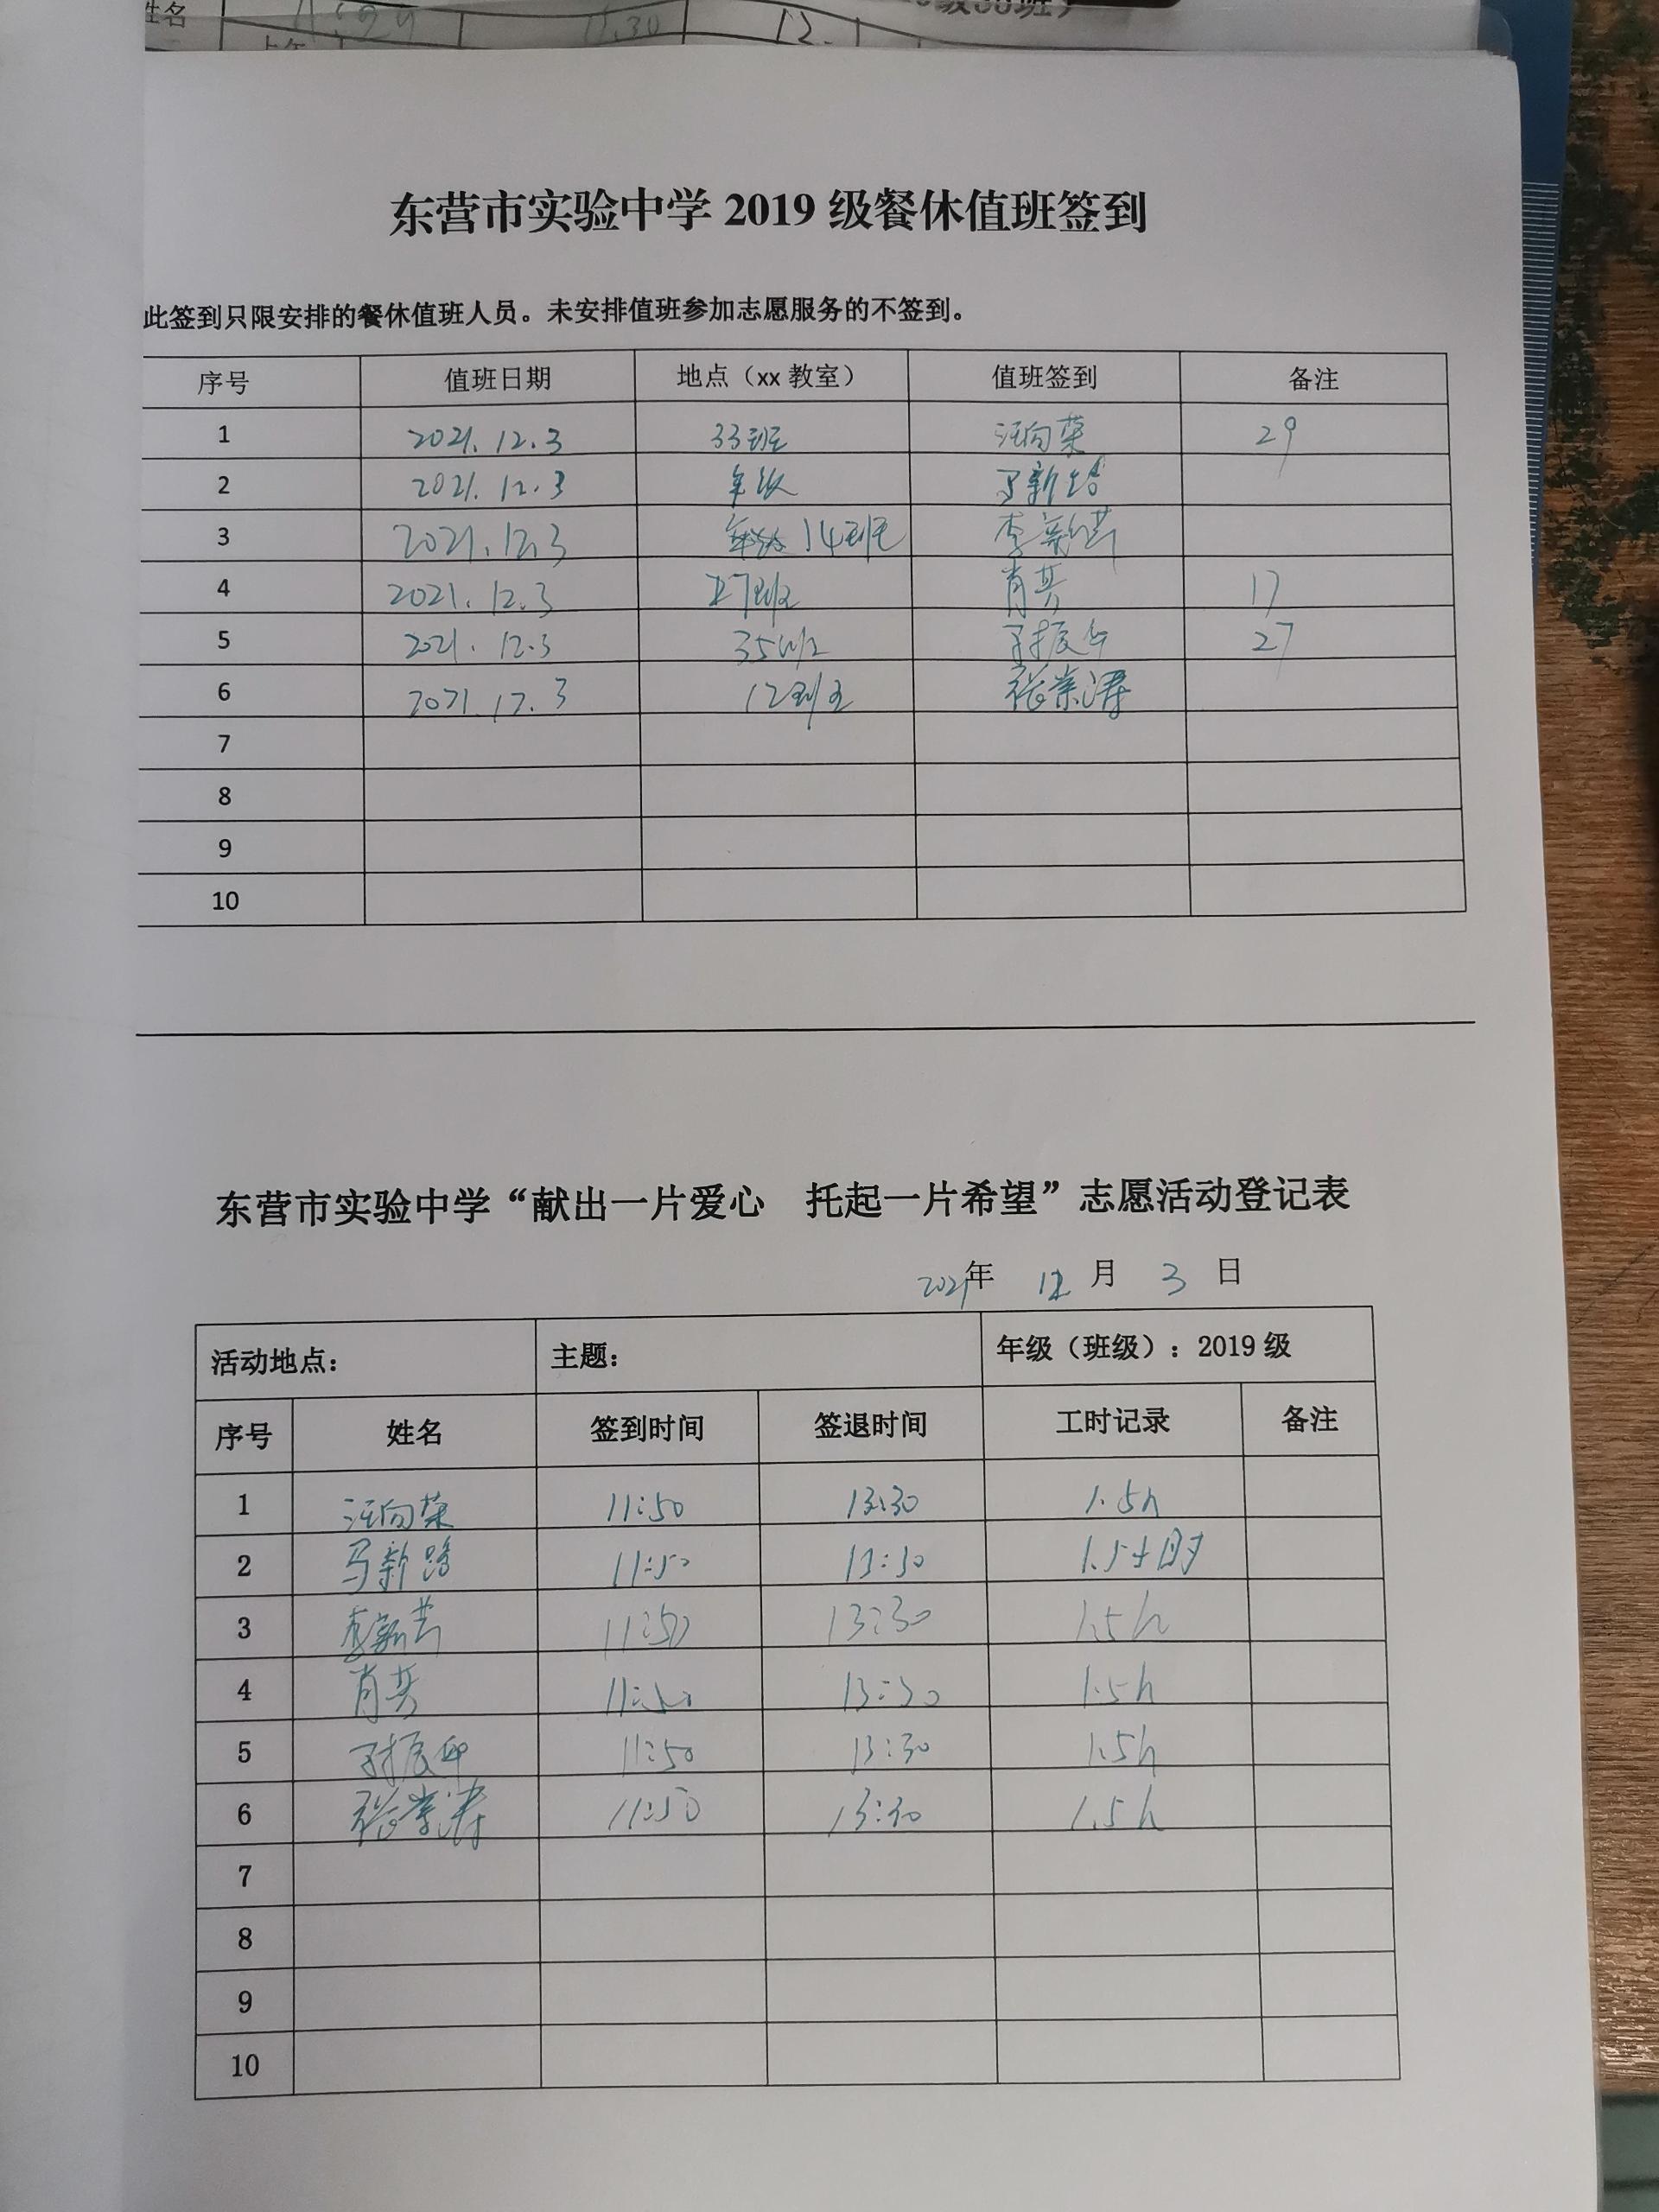 姓名
东营市实验中学 2019 级餐休值班签到
此签到只限安排的餐休值班人员。未安排值班参加志愿服务的不签到。
序号 值班日期 地点（xx 教室） 值班签到 备注
1 2021.12.3 33班 汪向荣 29
2 2021.12.3 年级 马新路
3 2021.12.3 年级 14班 李新芸
4 2021.12.3 27班 肖芸 17
5 2021.12.3 35班 27
6 2021.12.3 12班 张崇涛
7
8
9
10
东营市实验中学“献出一片爱心 托起一片希望”志愿活动登记表
2021年 12 月 3 日
活动地点： 主题： 年级（班级）：2019 级
序号 姓名 签到时间 签退时间 工时记录 备注
1 汪向荣 11:50 13:30 1.5h
2 马新路 11:50 13:30 1.5小时
3 李新芸 11:50 13:30 1.5h
4 肖芸 11:50 13:30 1.5h
5 11:50 13:30 1.5h
6 张崇涛 11:50 13:30 1.5h
7
8
9
10